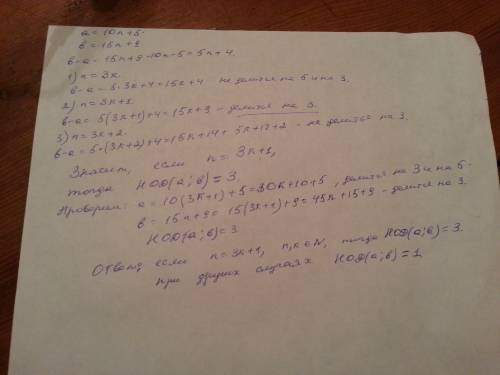 a = 10n+5.
b = 15n+9
b-a = 15n+9-10n-5 = 5n+4.
1) n = 3k.
b-a = 5·3k+4 = 15k+4 не делится на 5 и на 3.
2) n = 3k+1
b-a = 5(3k+1)+4 = 15k+9 - делится на 3.
3) n = 3k+2.
b-a = 5·(3k+2)+4 = 15k+14 - не делится на 3.
Значит, если n = 3k+1,
тогда НОД(a;b) = 3.
Проверим: a = 10(3k+1)+5 = 30k+10+5, делится на 3 и на 5.
b = 15n+9 = 15(3k+1)+9 = 45k+15+9 - делится на 3.
НОД(a;b) = 3
Ответ: если n = 3k+1, n,k∈N, тогда НОД(a;b) = 3.
при других случаях НОД(a;b) = 1